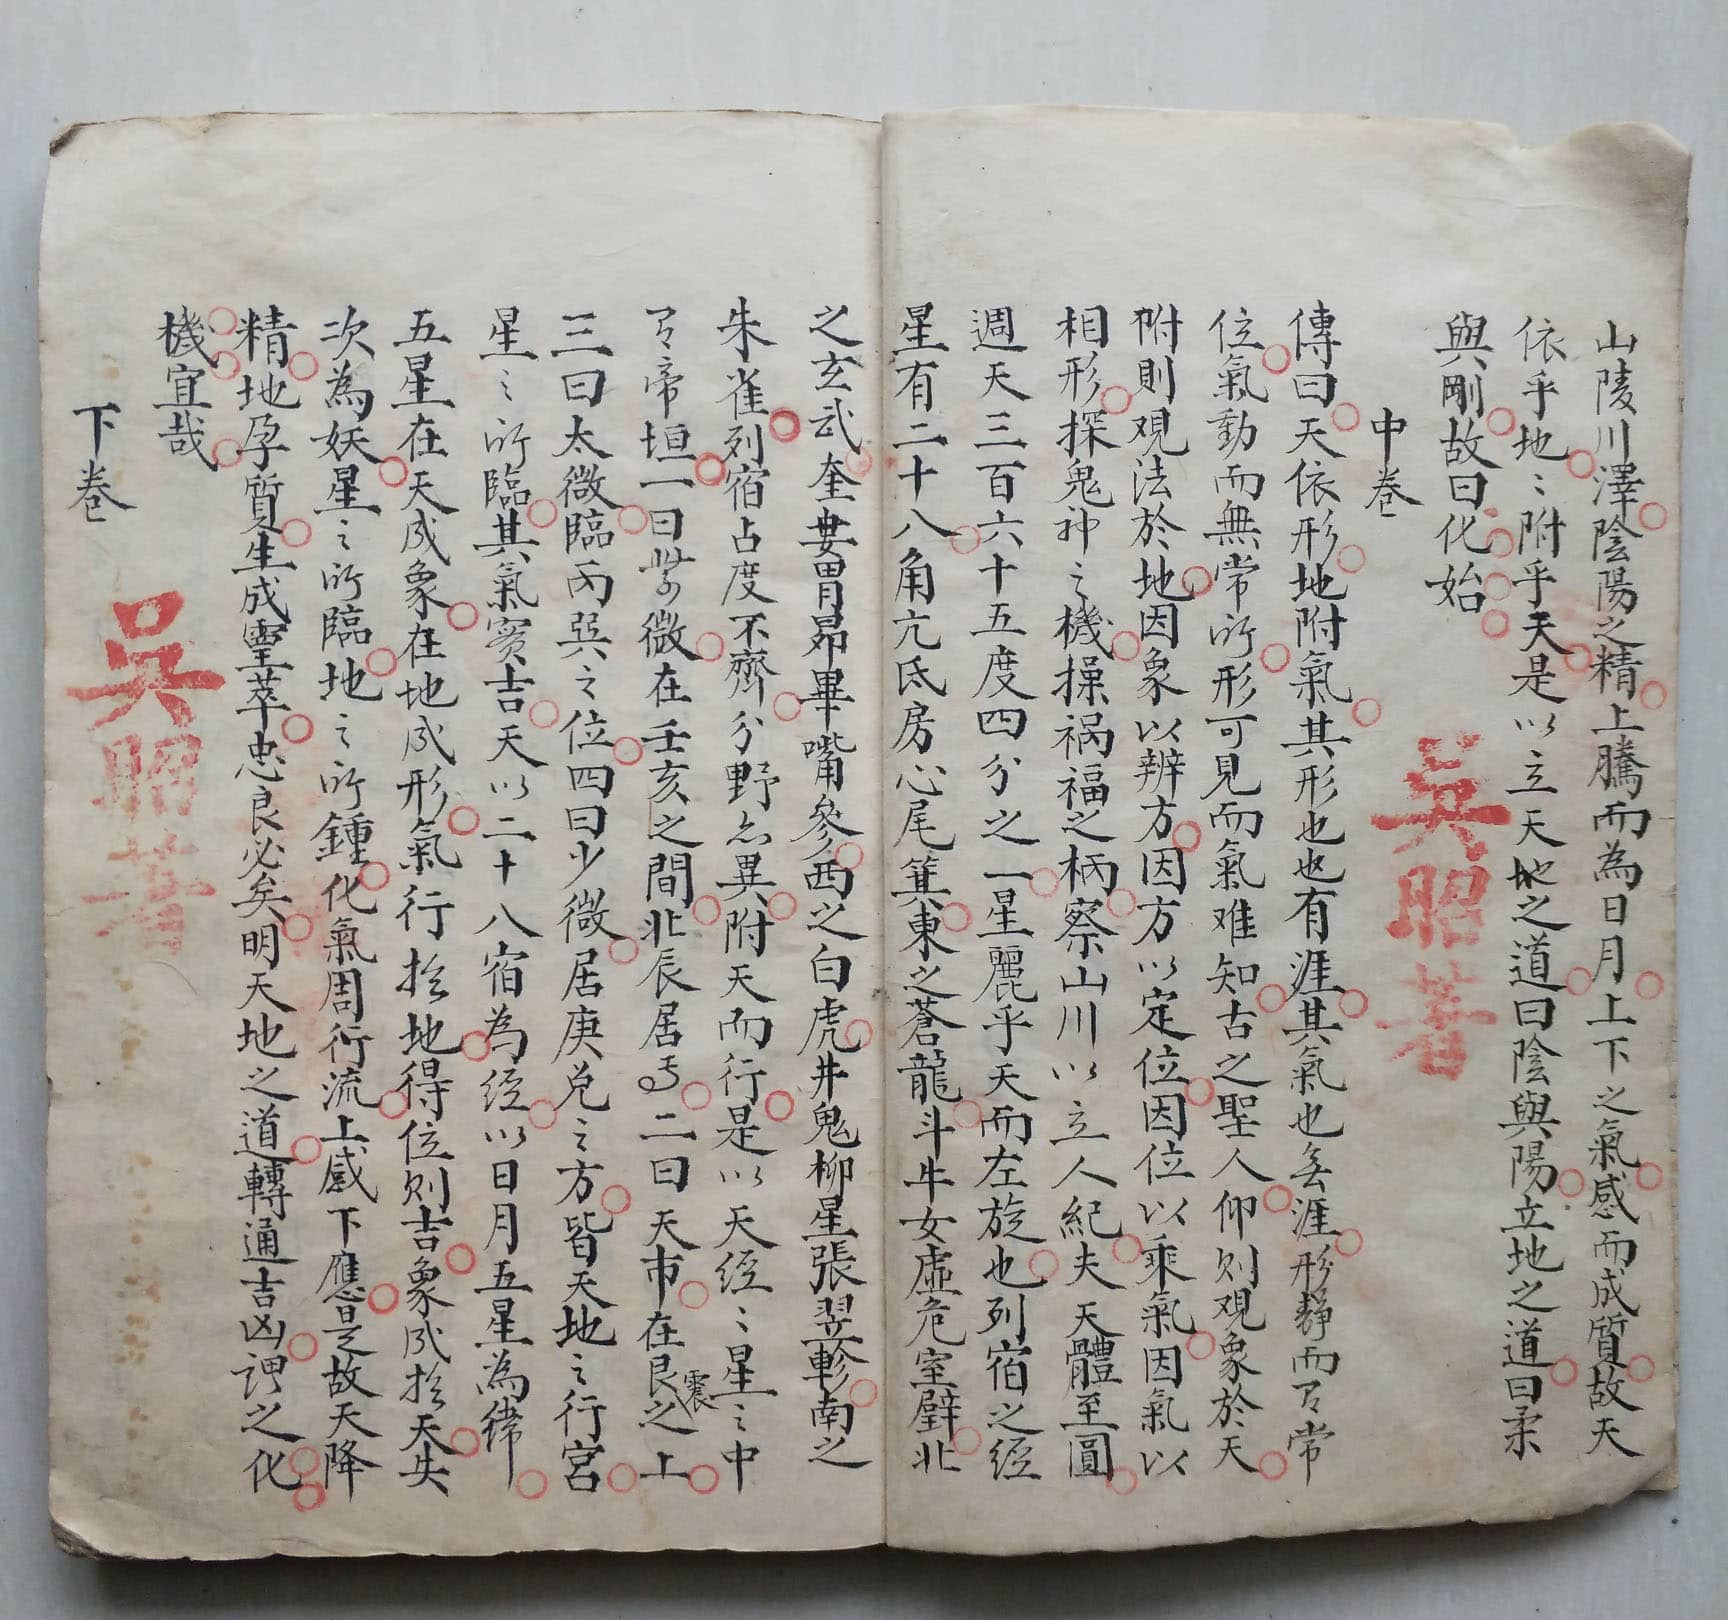 山陵川澤陰陽之精上騰而為日月上下之氣感而成質故天
依乎地〻附乎天是以立天地之道曰陰與陽立地之道曰柔
與剛故曰化始
中卷
吳昭著
傳曰天依形地附氣其形也也有涯其氣也無涯形靜而有常
位氣動而無常所形可見而氣难知古之聖人仰則观象於天
附則观法於地因象以辨方因方以定位因位以乘氣因氣以
相形探鬼神之機操禍福之柄察山川以立人紀夫天體至圓
週天三百六十五度四分之一星麗乎天而左旋也列宿之经
星有二十八角亢氐房心尾箕東之蒼龍斗牛女虛危室壁北
之玄武奎婁胃昴畢嘴參西之白虎井鬼柳星張翌軫南之
朱雀列宿占度不齊分野亦異附天而行是以天经〻星之中
有帝垣一曰紫微在壬亥之間北辰居焉二曰天市在艮震之上
三曰太微臨丙巽之位四曰少微居庚兌之方皆天地之行宮
星之所臨其氣寔吉天以二十八宿為经以日月五星為緯
五星在天成象在地成形氣行於地得位則吉象成於天失
次為妖星之所臨地之所鍾化氣周行流上感下應是故天降
精地孕質生成靈萃忠良必矣明天地之道轉通吉凶謂之化
機宜哉
下卷
吳昭著